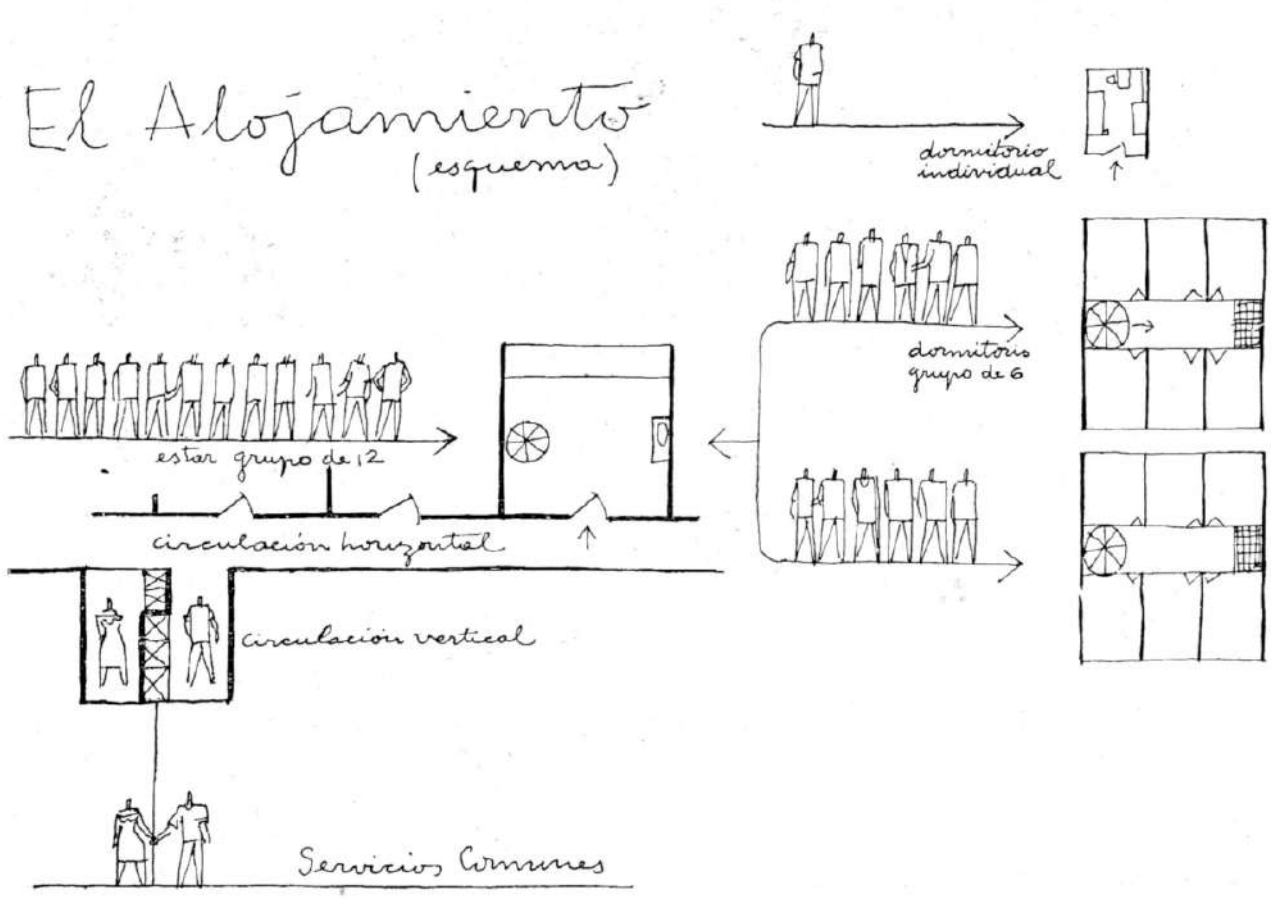 El Alojamiento
(esquema)
dormitorio
individual
dormitorio
grupo de 6
estar grupo de 12
circulación horizontal
circulación vertical
Servicios Comunes